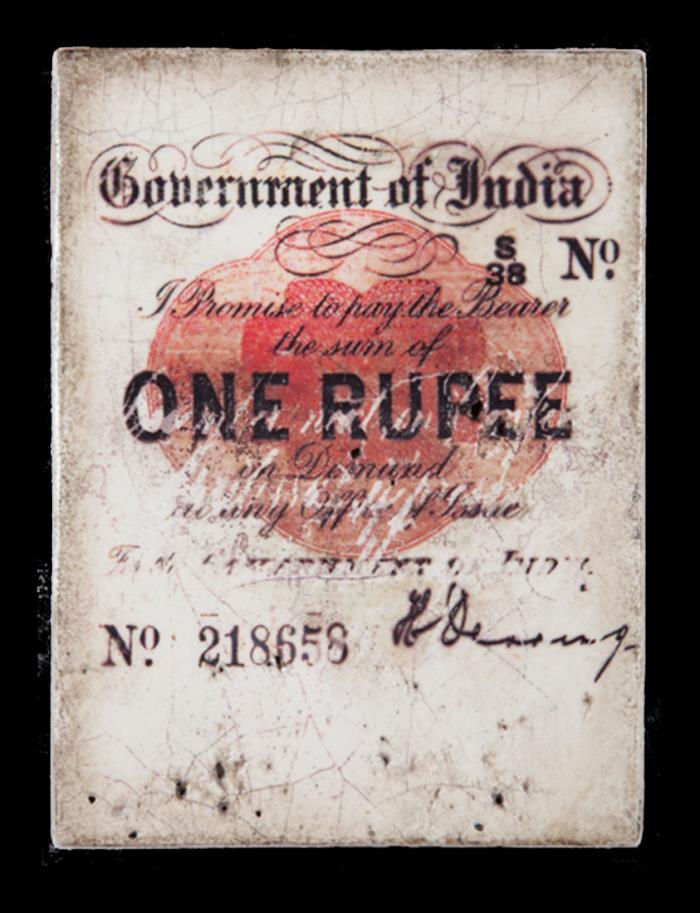 Government of India
S
38 Nº
I Promise to pay the Bearer
the sum of
ONE RUPEE
on Demand
at any Office of Issue
GOVERNMENT OF INDIA
Nº 218658